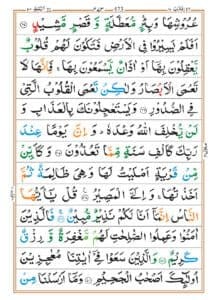 عُرُوْشِهَا وَبِئْرٍ مُّعَطَّلَةٍ وَّقَصْرٍ مَّشِيْدٍ
اَفَلَمْ يَسِيْرُوْا فِى الْاَرْضِ فَتَكُوْنَ لَهُمْ قُلُوْبٌ
يَّعْقِلُوْنَ بِهَاۤ اَوْ اٰذَانٌ يَّسْمَعُوْنَ بِهَا ۚ فَاِنَّهَا لَا
تَعْمَى الْاَبْصَارُ وَلٰكِنْ تَعْمَى الْقُلُوْبُ الَّتِىْ
فِى الصُّدُوْرِ وَيَسْتَعْجِلُوْنَكَ بِالْعَذَابِ وَ
لَنْ يُّخْلِفَ اللّٰهُ وَعْدَهٗ ؕ وَاِنَّ يَوْمًا عِنْدَ
رَبِّكَ كَاَلْفِ سَنَةٍ مِّمَّا تَعُدُّوْنَ وَكَاَيِّنْ
مِّنْ قَرْيَةٍ اَمْلَيْتُ لَهَا وَهِىَ ظَالِمَةٌ ثُمَّ
اَخَذْتُهَا ۚ وَاِلَىَّ الْمَصِيْرُ قُلْ يٰۤاَيُّهَا
النَّاسُ اِنَّمَاۤ اَنَا لَكُمْ نَذِيْرٌ مُّبِيْنٌ فَالَّذِيْنَ
اٰمَنُوْا وَعَمِلُوا الصّٰلِحٰتِ لَهُمْ مَّغْفِرَةٌ وَّرِزْقٌ
كَرِيْمٌ وَالَّذِيْنَ سَعَوْا فِىْۤ اٰيٰتِنَا مُعٰجِزِيْنَ
اُولٰٓئِكَ اَصْحٰبُ الْجَحِيْمِ وَمَاۤ اَرْسَلْنَا مِنْ